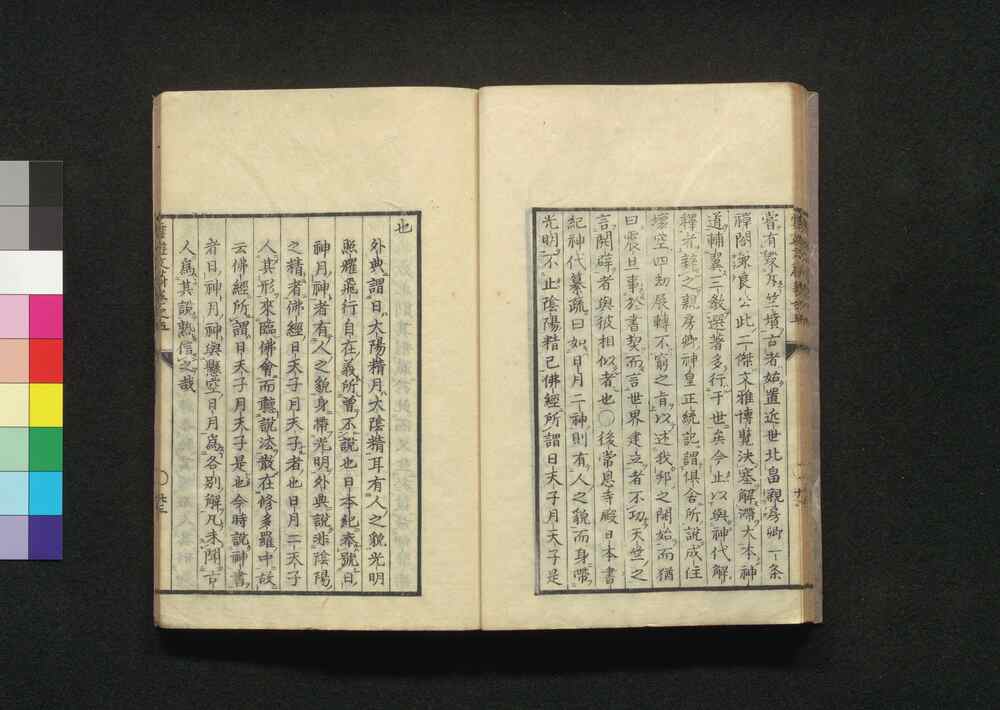 嘗有擧乃竺墳古者始置近世北畠親房卿一条
禪閤兼良公此二傑文雅博覽決塞解滯大本神
道輔翼三教選著多行于世矣今止以與神代解
釋光籍之親房卿神皇正統記謂倶舍所說成住
壞空四劫展轉不窮之旨以述我邦之開始而猶
曰震旦事於書契而言世界建立者不功天竺之
言開辟者與彼相似者也〇後常恩寺殿日本書
紀神代纂疏曰如日月二神則有人之貌而身帶
光明不止陰陽精已佛經所謂日天子月天子是
也
外典謂日太陽精月太陰精耳有人之貌光明
照耀飛行自在義所曾不說也日本紀奉號日
神月神者有人之貌身帶光明外典說非陰陽
之精者佛經日天子月天子者也日月二天子
人其形來臨佛會而聽說法散在修多羅中故
云佛經所謂日天子月天子是也今時說神書
者日神月神與懸空日月爲各別解凡未聞古
人爲其說孰信之哉